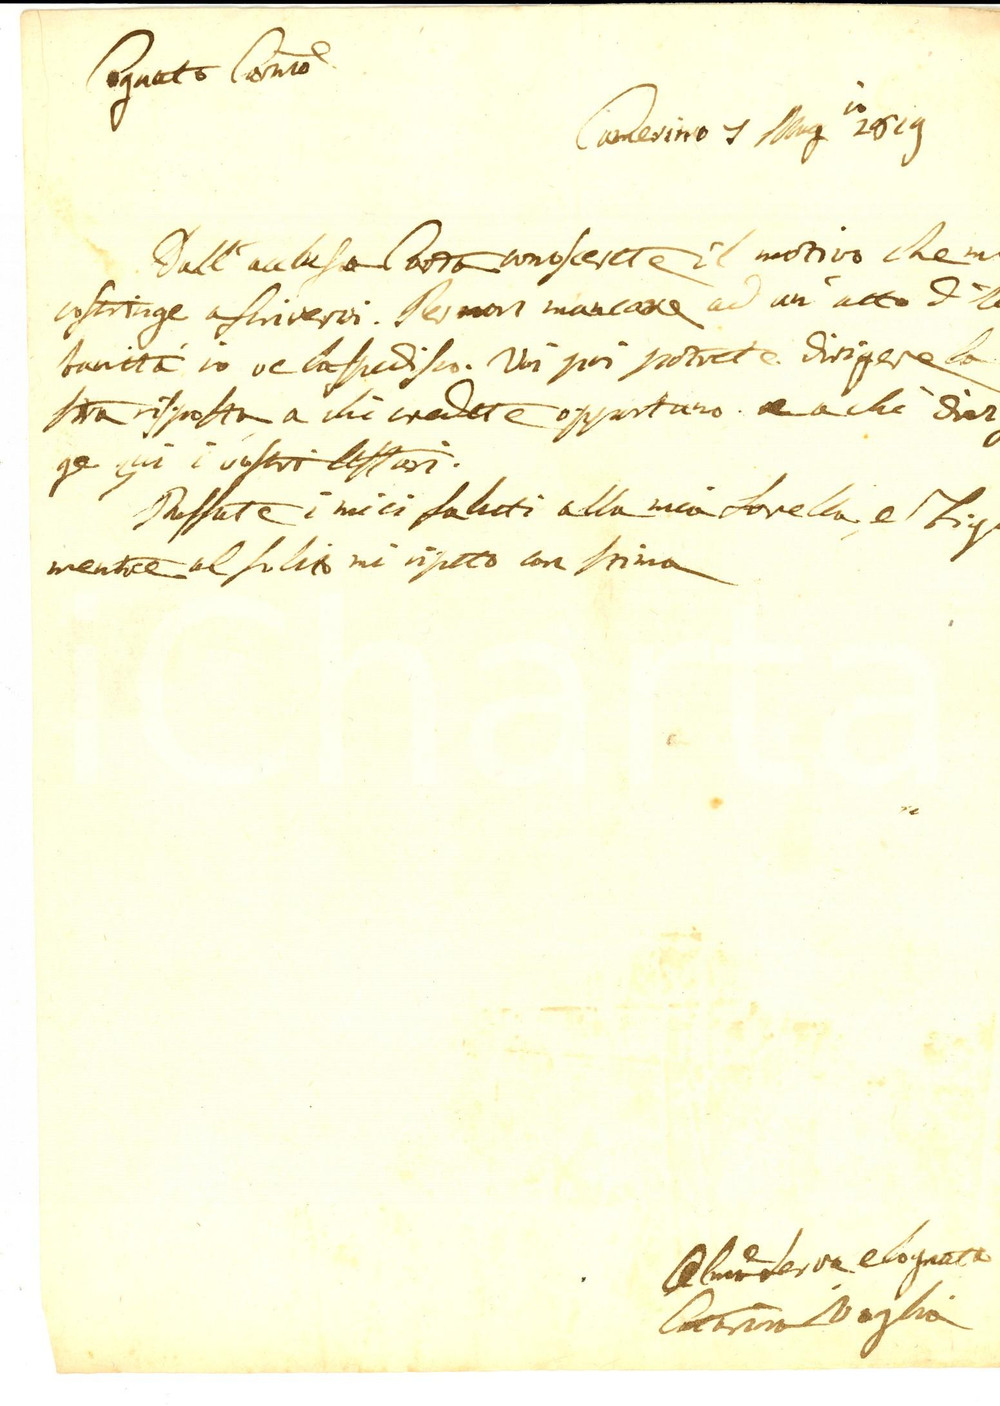 Cognato Carmo
Camerino 7 Mag.io 1819
Dall'acclusa Carta conoscerete il motivo che m
costringe a scrivervi. Per non mancare ad un atto d'
banità io ve la spedisco. Voi poi potrete dirigere la
stra risposta a chi credete opportuno e a chi diri
ge qui i vostri affari.
Passate i miei saluti alla mia Sorella, e
mentre al solito mi ripeto con stima
iCharta
Serva e Cognata
Caterina Voglia